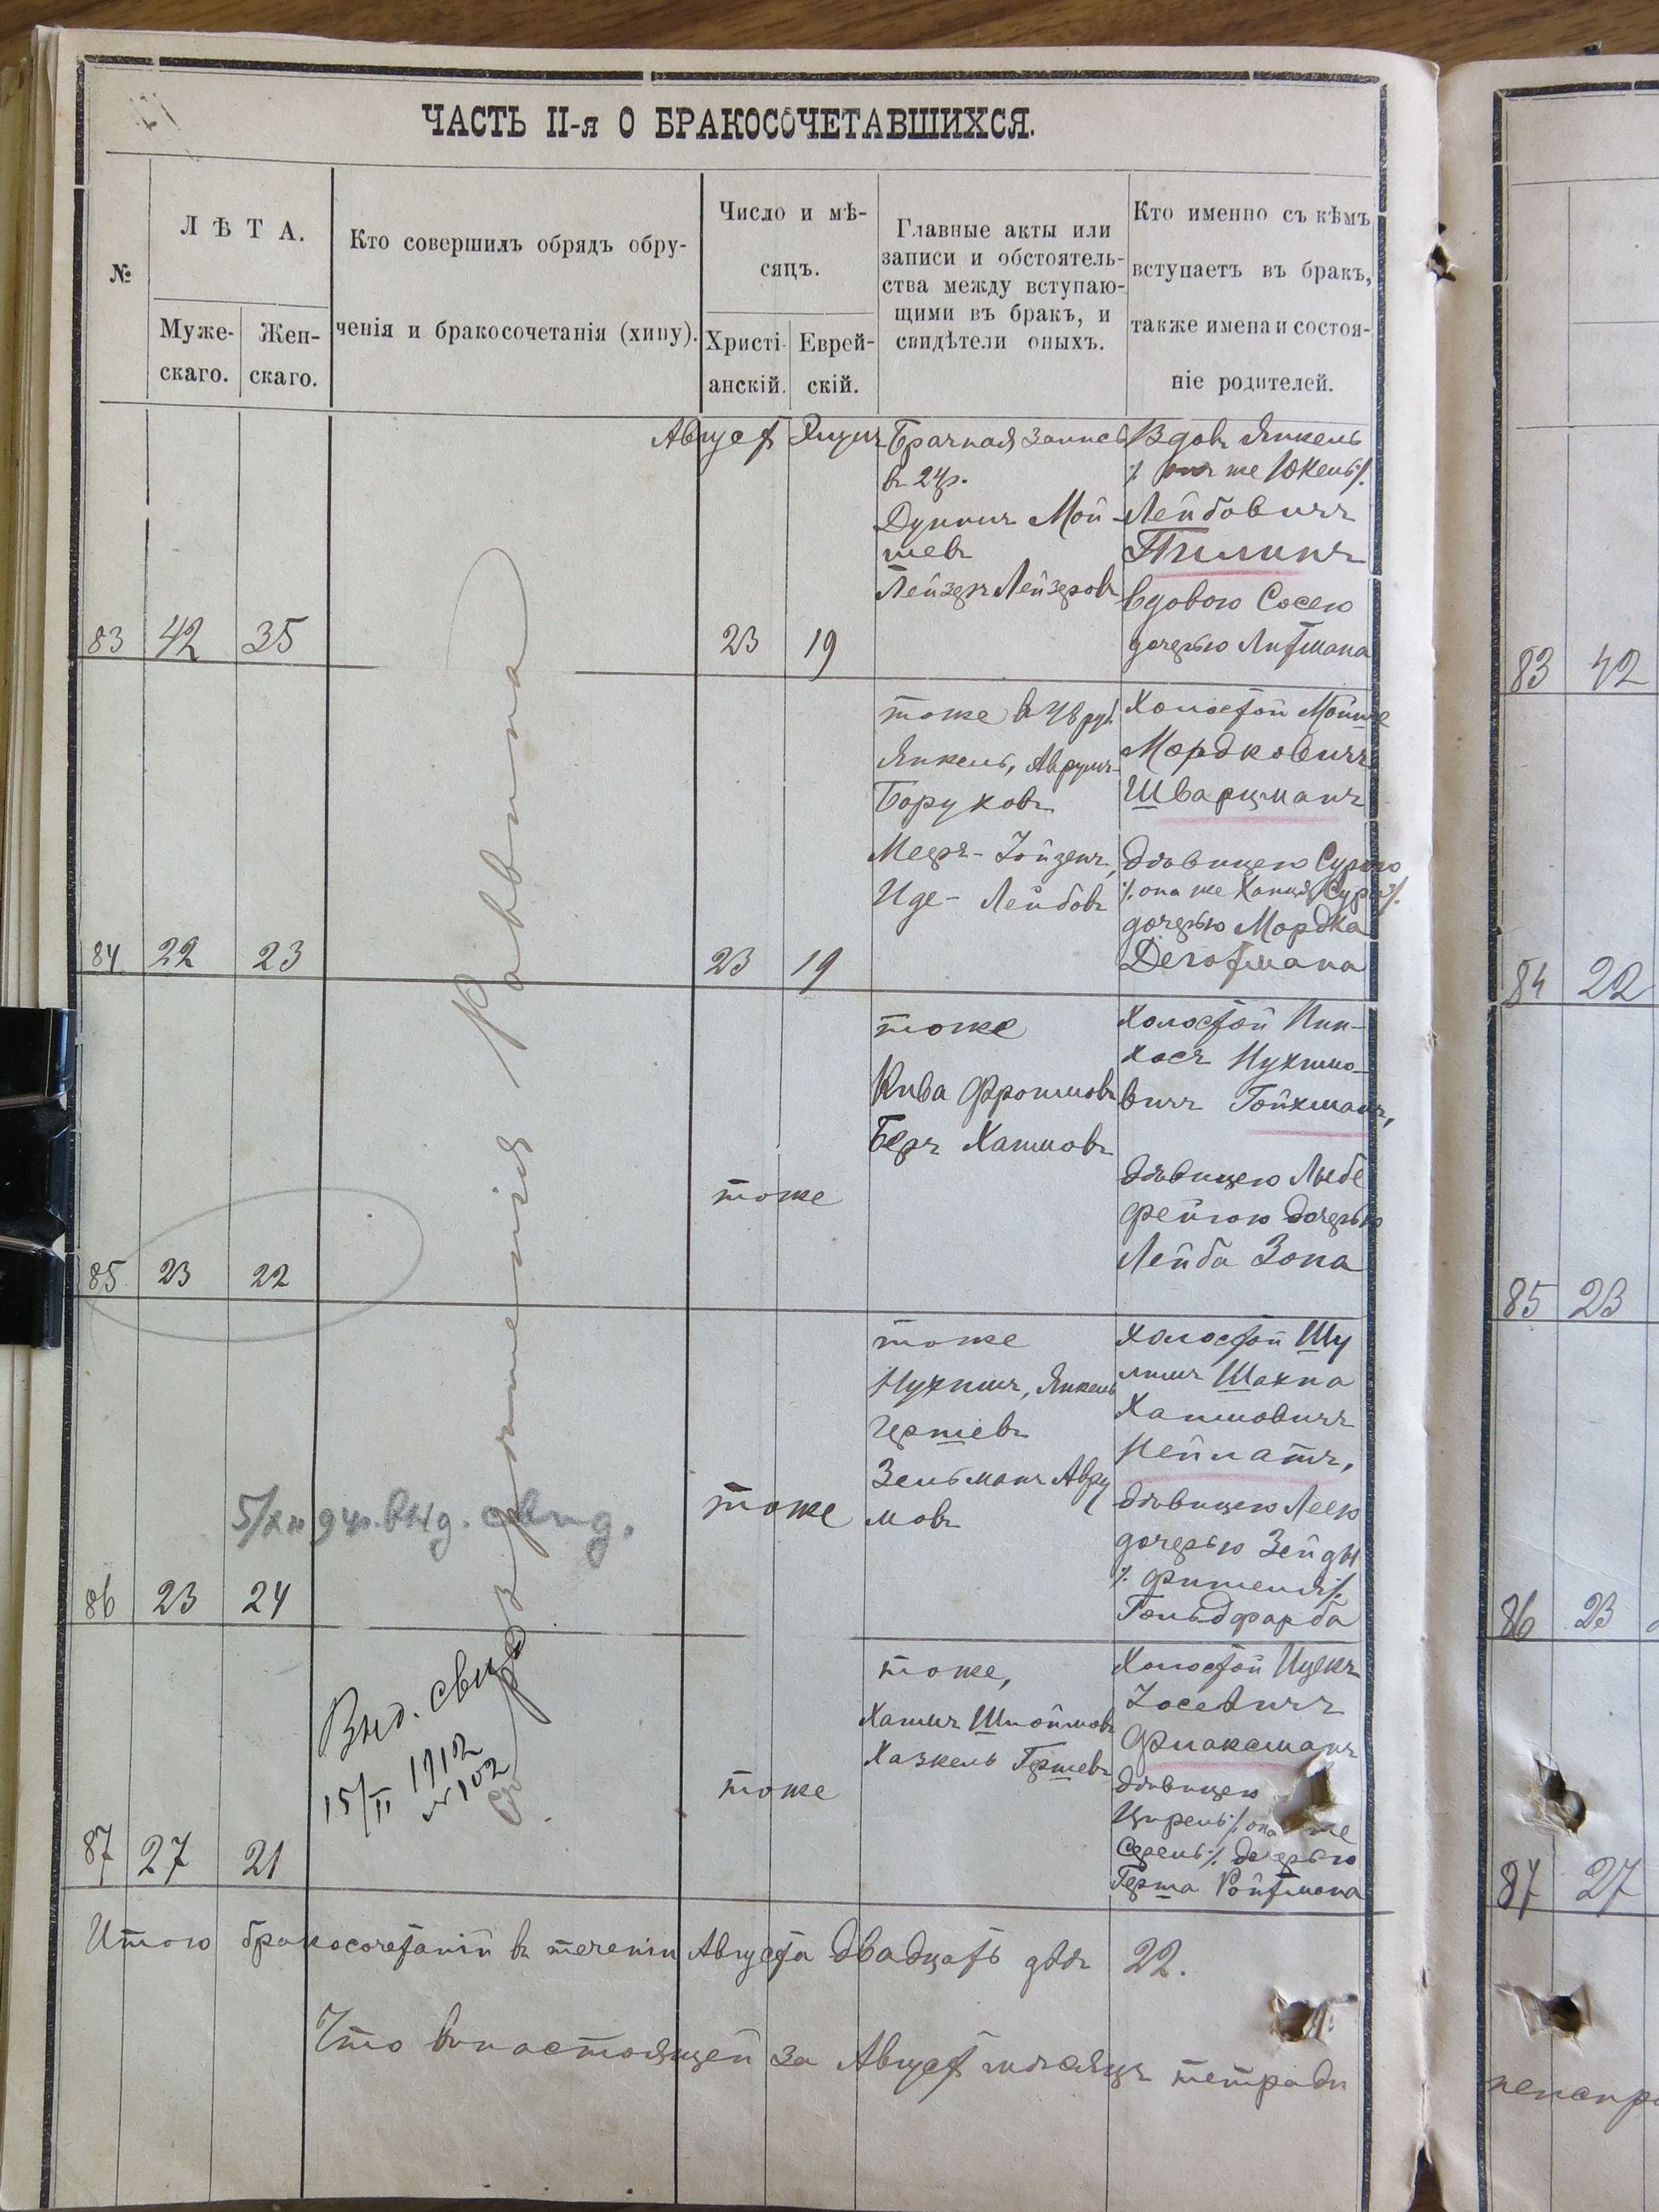 ЧАСТЬ II-я О БРАКОСОЧЕТАВШИХСЯ.
№
ЛѢТА.
Муже-
скаго.
Жен-
скаго.
Кто совершилъ обрядъ обру-
ченія и бракосочетанія (хипу).
Число и мѣ-
сяцъ.
Христі-
анскій.
Еврей-
скій.
Главные акты или
записи и обстоятель-
ства между вступаю-
щими въ бракъ, и
свидѣтели оныхъ.
Кто именно съ кѣмъ
вступаетъ въ бракъ,
также имена и состоя-
ніе родителей.
Съ разрешенія Раввина
83 42 35
Август
23 19
Брачная запись
въ
Мой-
шевъ
Лейзеръ Лейзеровъ
Вдовъ Янкель
·/. онъ же Юкель ·/.
Лейбовичъ
Пилипъ
вдовою Сосею
дочерью Литмана
84 22 23
23 19
тоже въ 48 руб.
Янкель, Аврумъ
Боруховъ
Мееръ-
Иде-Лейбовъ
Холостой Мойше
Мордковичъ
Шварцманъ
дѣвицею Сурою
·/. она же Ханя Сура ·/.
дочерью Мордка
85 23 22
тоже
тоже
Кива Фроимовъ
Беръ Хаимовъ
Холостой Пин-
хасъ Нухимо-
вичъ Гойхманъ,
дѣвицею Лыбе
Фейгою дочерью
Лейба Зона
86 23 24
5/XII 9 выд. свид.
тоже
тоже
Нухимъ, Янкель
Гершевъ
Зельманъ Авру
мовъ
Холостой Шу
лимъ Шахна
Хаимовичъ
дѣвицею Леею
дочерью Зейды
·/. Фишеля ·/.
Гольдфарба
87 27 21
Выд. свид
15/II 1912
№ 102
тоже
тоже,
Хаимъ Шлоймовъ
Хаскель Гершевъ
Холостой Ицекъ
Іосевичъ
Флаксманъ
дѣвицею
Цирель ·/. она же
Серель ·/. дочерью
Герша Ройтмана
Итого бракосочетаній въ теченіи Августа двадцать двѣ 22.
Что въ настоящей за Август мѣсяцъ тетради
83 42
84 22
85 23
86 23
87 27